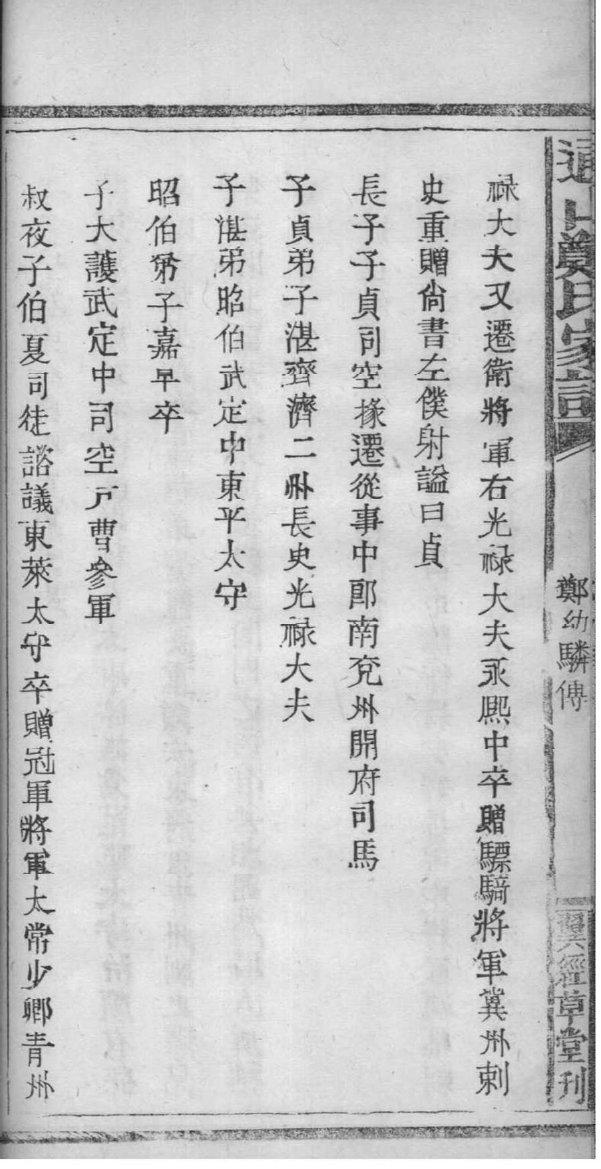 鄭氏家譜
鄭幼驎傳
翼經草堂刋
祿大夫又遷衛將軍右光祿大夫永熙中卒贈驃騎將軍冀州刺
史重贈尙書左僕射謚曰貞
長子子貞司空掾遷從事中郎南兗州開府司馬
子貞弟子湛齊濟二州長史光祿大夫
子湛弟昭伯武定中東平太守
昭伯弟子嘉早卒
子大護武定中司空戶曹參軍
叔夜子伯夏司徒諮議東萊太守卒贈冠軍將軍太常少卿青州